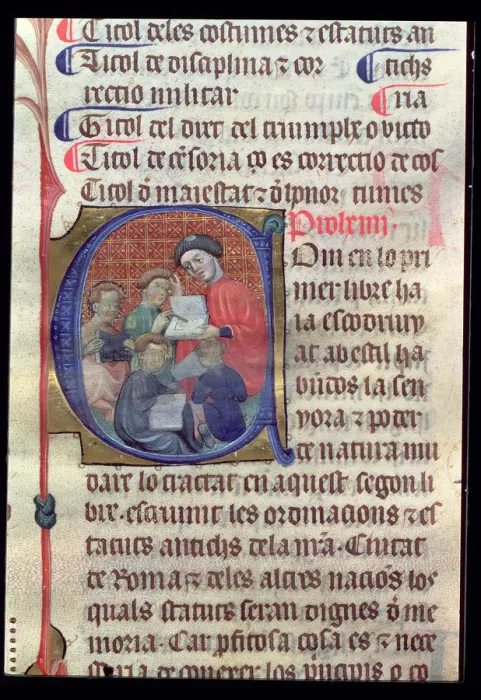 Titol deles costumes ⁊ estatuts an
tichs
Titol de disciplina ⁊ cor
rectio militar
ria
Titol del dret del triumphe o victo
Titol de cẽsoria ço es correctio de cos
tumes
Titol đ maiestat ⁊ đ honor
Prolemi.
Om en lo pri
mer libre ha
ia escodriny
at ab estil ha
bundos la sen
yora ⁊ poder
te natura mu
dare lo tractat en aquest segon li
bre. escriuint les ordinacions ⁊ es
tatuts antichs dela mr̃a. Ciutat
de Roma ⁊ deles altres naciõs los
quals statuts seran dignes đ me
moria. Car pfitosa cosa es ⁊ nece
ssaria de conexer los